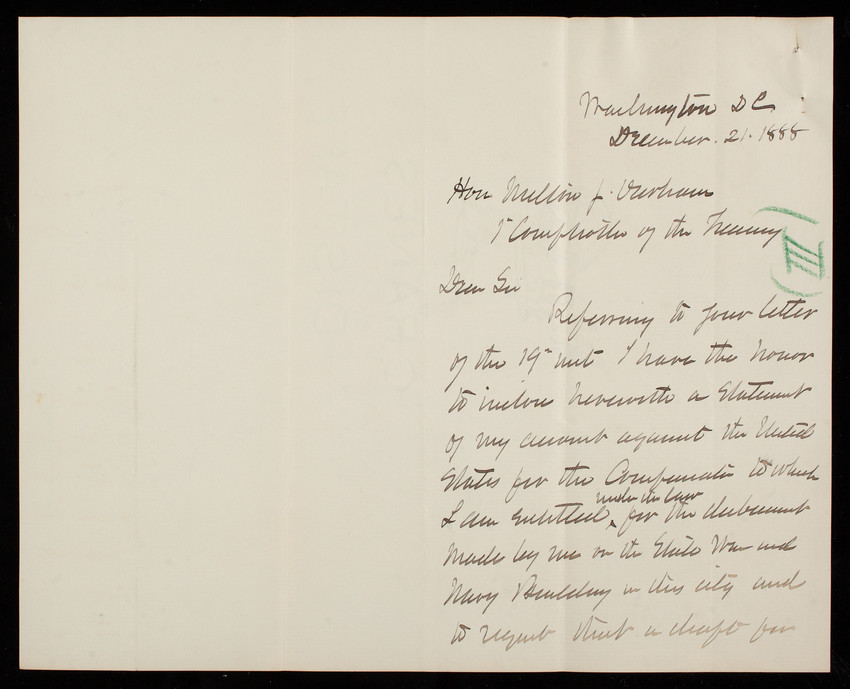 Washington DC
December. 21. 1888
Hon Milton J. Durham
1st Comptroller of the Treasury
(III)
Dear Sir
Referring to your letter
of the 19th inst I have the honor
to inclose herewith a Statement
of my account against the United
States for the Compensation to which
under the law
I am entitled, for the disbursement
made by me on the State War and
Navy Building in this city and
to request that a draft for